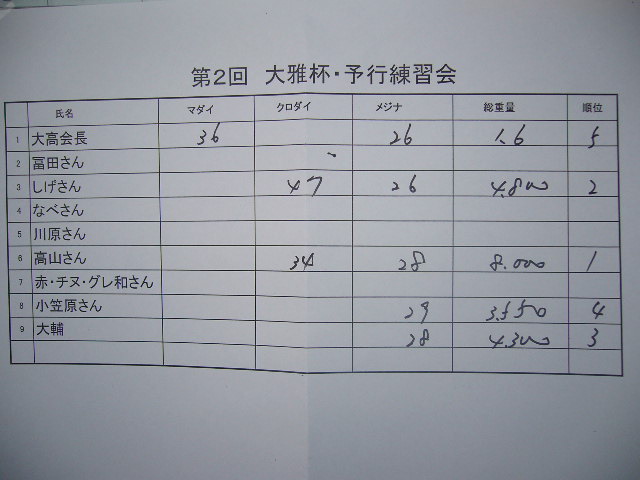 第2回 大雅杯・予行練習会
氏名 マダイ クロダイ メジナ 総重量 順位
1 大高会長 36 26 1.6 5
2 冨田さん
3 しげさん 47 26 4.800 2
4 なべさん
5 川原さん
6 高山さん 34 28 8.000 1
7 赤・チヌ・グレ和さん
8 小笠原さん 29 3.550 4
9 大輔 28 4.300 3